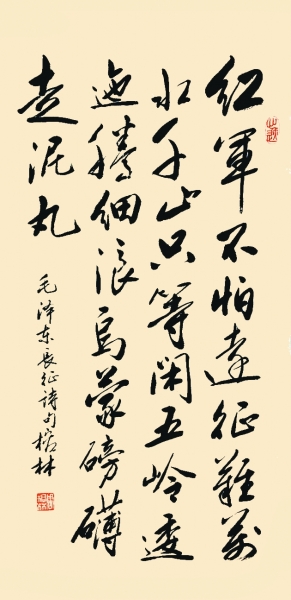 红軍不怕遠征難萬
水千山只等闲五岭逶
迤腾细浪乌蒙磅礴
走泥丸
毛泽东長征詩句林